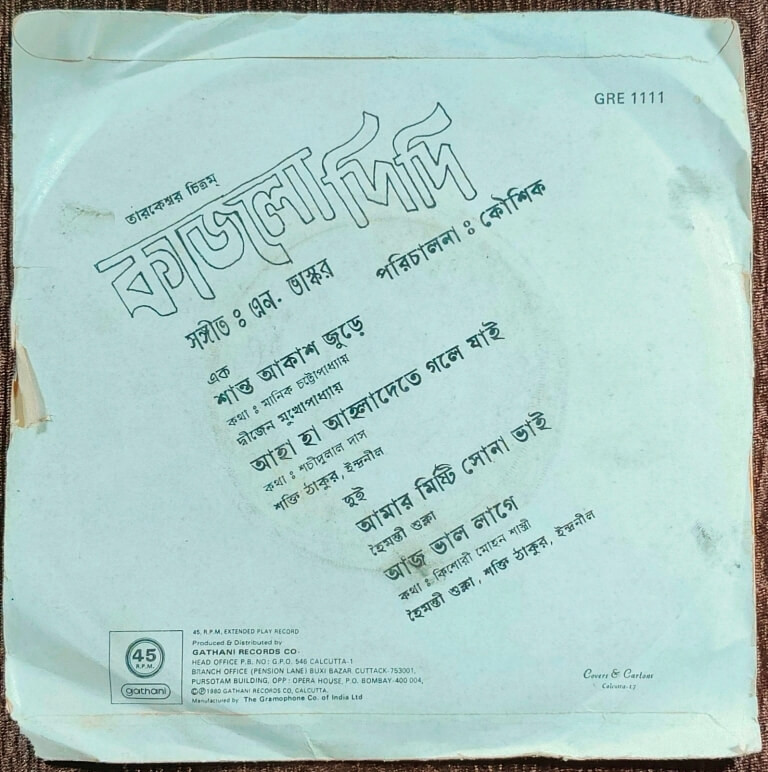 GRE 1111
তারকেশ্বর চিত্রম্
কাজলা দিদি
সঙ্গীত : এন. ভাস্কর পরিচালনা : কৌশিক
এক
শান্ত আকাশ জুড়ে
কথা : মানিক চট্টোপাধ্যায়
দ্বীজেন মুখোপাধ্যায়
আহা হা আহ্লাদেতে গলে যাই
কথা : শচীদুলাল দাস
শক্তি ঠাকুর, ইন্দ্রনীল
দুই
আমার মিষ্টি সোনা ভাই
হৈমন্তী শুক্লা
আজ ভাল লাগে
কথা : কিশোরী মোহন শাস্ত্রী
হৈমন্তী শুক্লা, শক্তি ঠাকুর, ইন্দ্রনীল
45
R.P.M.
gathani
45, R.P.M, EXTENDED PLAY RECORD
Produced & Distributed by
GATHANI RECORDS CO.
HEAD OFFICE P.B. NO: G.P.O. 546 CALCUTTA-1
BRANCH OFFICE (PENSION LANE) BUXI BAZAR, CUTTACK-753001,
PURSOTAM BUILDING, OPP : OPERA HOUSE, P.O. BOMBAY-400 004,
©℗ 1980 GATHANI RECORDS CO, CALCUTTA.
Manufactured by The Gramophone Co. of India Ltd
Covers & Cartons
Calcutta-17